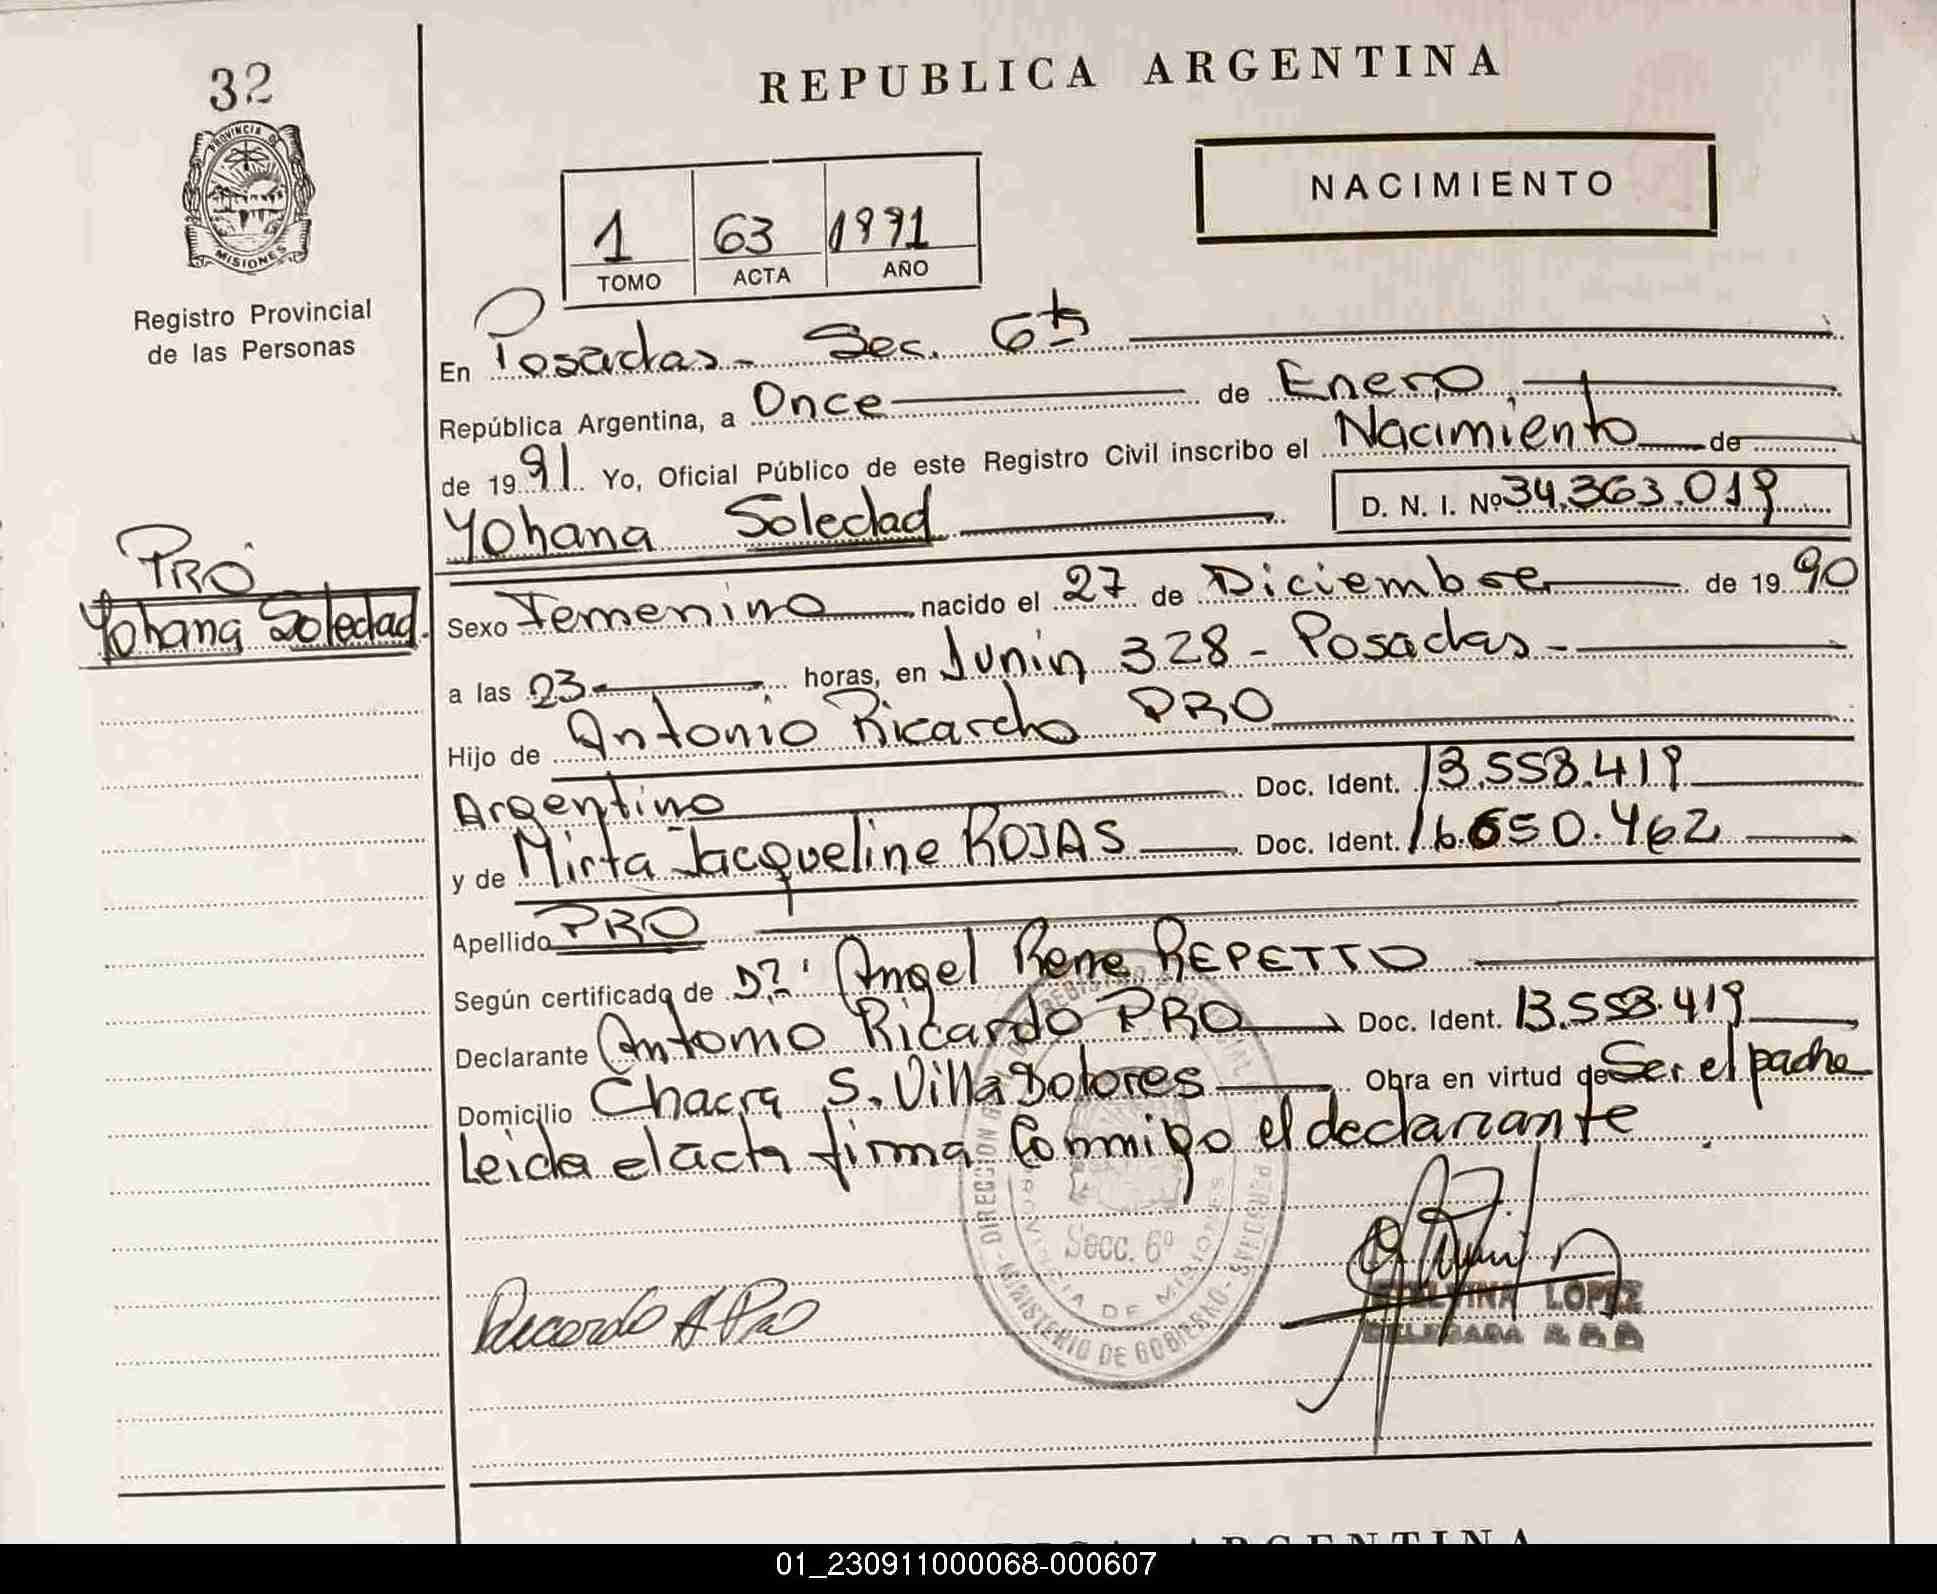 32
PROVINCIA DE
MISIONES
Registro Provincial
de las Personas
REPUBLICA ARGENTINA
NACIMIENTO
1 63 1991
TOMO ACTA AÑO
En Posadas - Sec. 6ta
República Argentina, a Once de Enero
de 1991 Yo, Oficial Público de este Registro Civil inscribo el Nacimiento de
Yohana Soledad D. N. I. Nº 34.363.019
PRO
Yohana Soledad.
Sexo Femenino nacido el 27 de Diciembre de 1990
a las 23 horas, en Junin 328 - Posadas -
Hijo de Antonio Ricardo PRO
Argentino Doc. Ident. 13.558.419
y de Mirta Jacqueline ROJAS Doc. Ident. 16.650.462
Apellido PRO
Según certificado de Dr. Angel Rene REPETTO
Declarante Antonio Ricardo PRO Doc. Ident. 13.558.419
Domicilio Chacra S. Villa Dolores Obra en virtud de Ser el padre
Leida el acta firma Conmigo el declarante
Secc. 6º
PROVINCIA DE MISIONES
MINISTERIO DE GOBIERNO
Ricardo A Pro
LOPEZ
DELEGADA
01_230911000068-000607